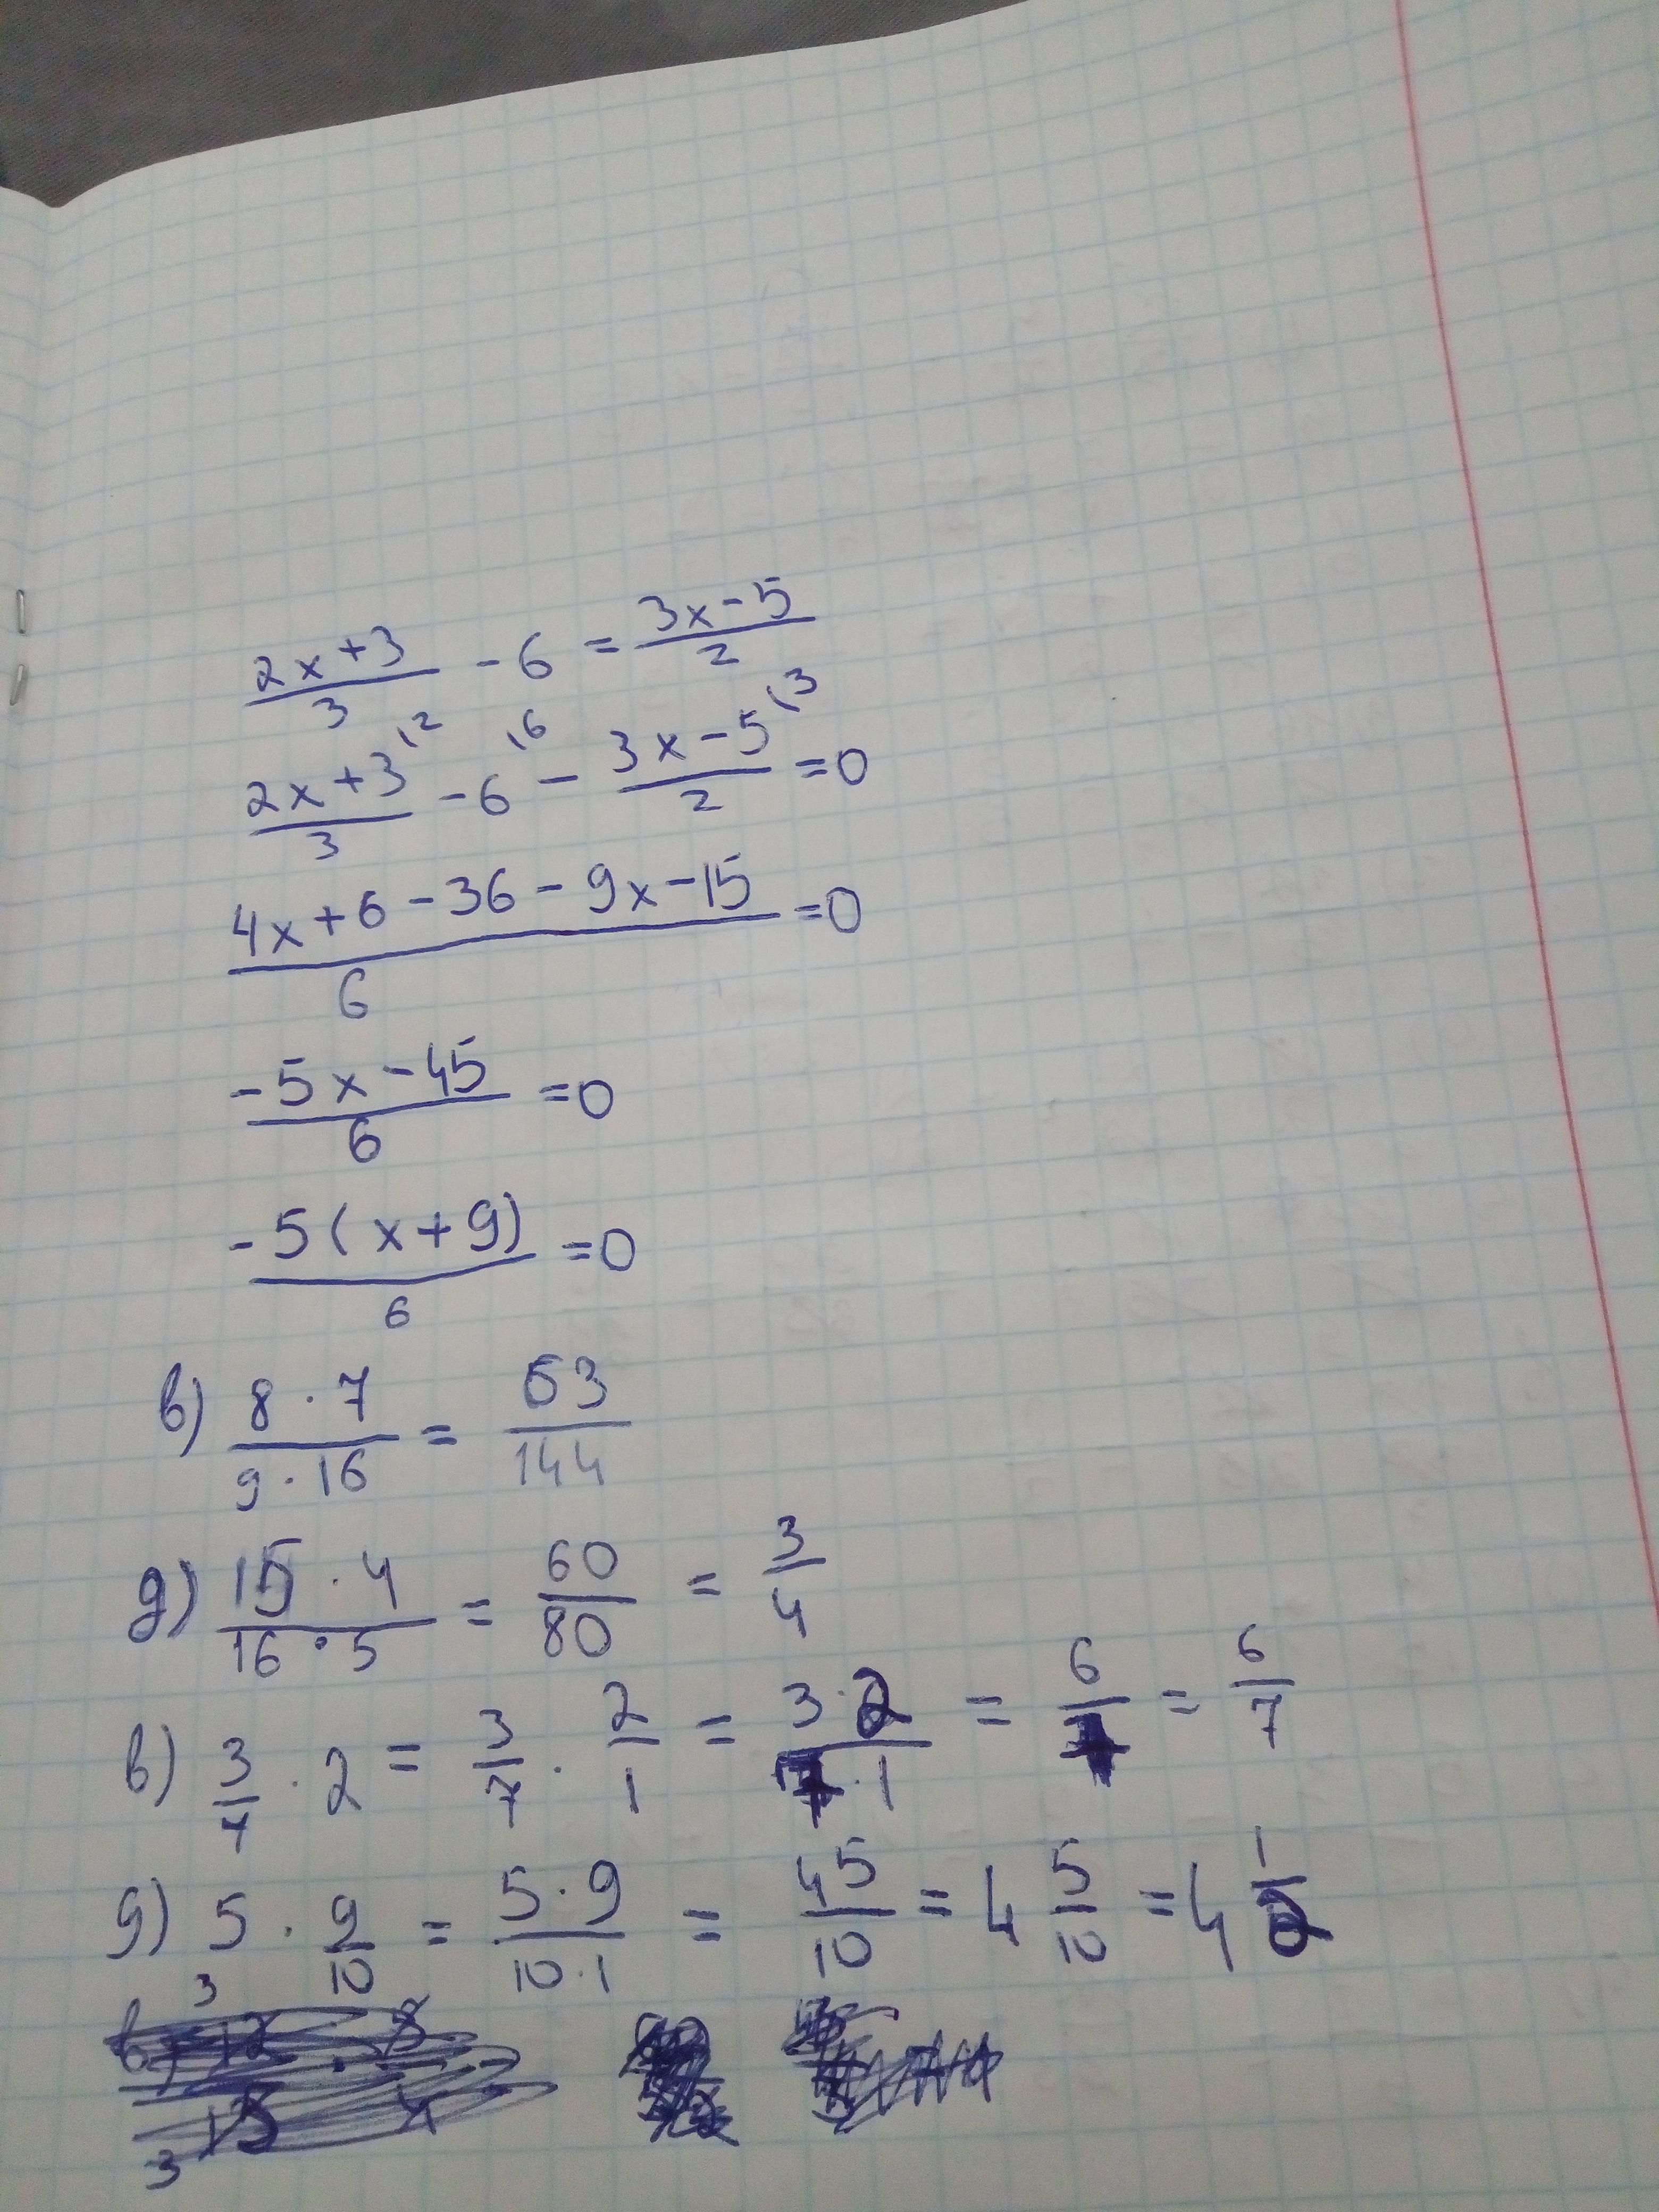 (2x+3)/3 - 6 = (3x-5)/2
(2x+3)/3 ⁽² - 6 ⁽⁶ - (3x-5)/2 ⁽³ = 0
(4x+6-36-9x-15)/6 = 0
(-5x-45)/6 = 0
(-5(x+9))/6 = 0
в) (8·7)/(9·16) = 63/144
д) (15·4)/(16·5) = 60/80 = 3/4
в) 3/7 · 2 = 3/7 · 2/1 = (3·2)/(7·1) = 6/7 = 6/7
д) 5 · 9/10 = (5·9)/(10·1) = 45/10 = 4 5/10 = 4 1/2